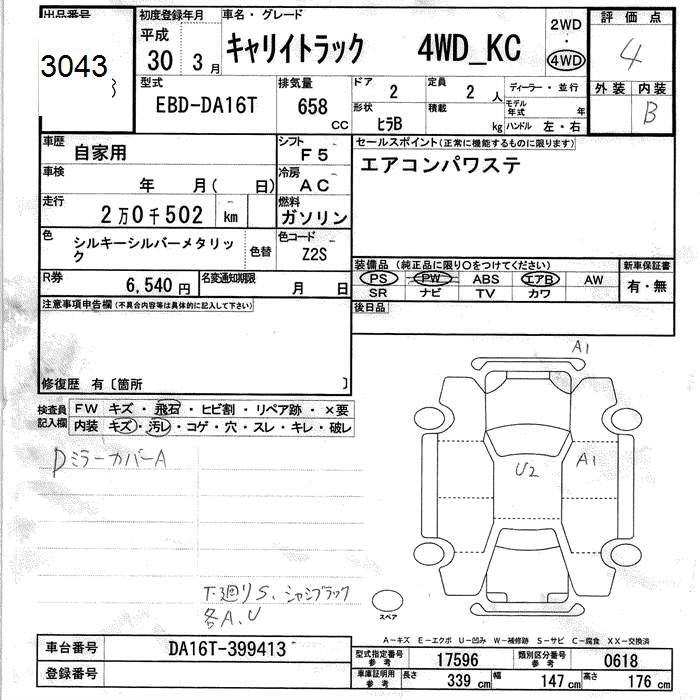 出品番号
3043
初度登録年月
平成
30 3月
車名・グレード
キャリイトラック 4WD_KC
2WD
・
4WD
評価点
4
外装 内装
B
型式
EBD-DA16T
排気量
658
CC
ドア
2
定員
2 人
形状
ヒラB
積載
kg
ディーラー・並行
モデル年式 年
ハンドル 左・右
車歴
自家用
シフト
F5
車検
年 月( 日)
冷房
AC
走行
2万0千502 km
燃料
ガソリン
色
シルキーシルバーメタリック
色替
色コード
Z2S
R券
6,540円
名変通知期限
月 日
セールスポイント(正常に機能するものに限ります)
エアコンパワステ
装備品(純正品に限り〇をつけてください)
PS PW ABS エアB AW
SR ナビ TV カワ
新車保証書
有・無
後日品
注意事項申告欄(不具合内容等は具体的に記入して下さい)
修復歴 有〔箇所 〕
検査員記入欄
FW キズ・飛石・ヒビ割・リペア跡・×要
内装 キズ・汚レ・コゲ・穴・スレ・キレ・破レ
DミラーカバーA
A1
U2
A1
下廻りS、シャシブラック
各A、U
スペア
A-キズ E-エクボ U-凹み W-補修跡 S-サビ C-腐食 XX-交換済
車台番号
DA16T-399413
登録番号
型式指定番号 参考
17596
類別区分番号 参考
0618
車庫証明用 参考
長さ 339 cm
幅 147 cm
高さ 176 cm